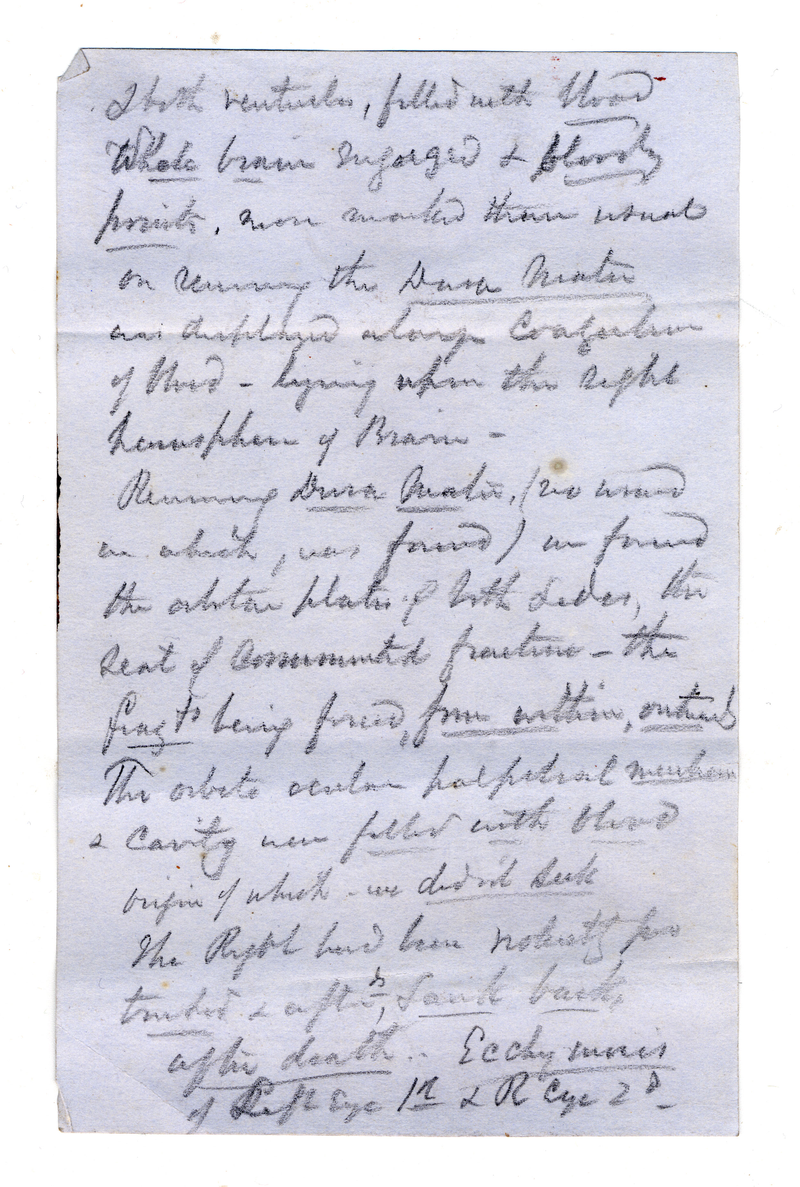 & both ventricles, filled with blood
Whole brain engorged & bloody
points, more marked than usual
on removing the Dura Mater
was displayed a large Coagulum
of blood - lying upon the right
hemisphere of Brain -
Removing Dura Mater, (no wound
in which, was found) we found
the orbital plates of both sides, the
seat of comminuted fracture - the
fragts being forced, from within, outwards
The orbits ocular palpebral membrane
& cavity were filled with blood
origin of which - we did not seek
The Right had been notably pro
truded & afterds, sunk back,
after death.. Ecchymosis
of Left eye 1st & R eye 2d -